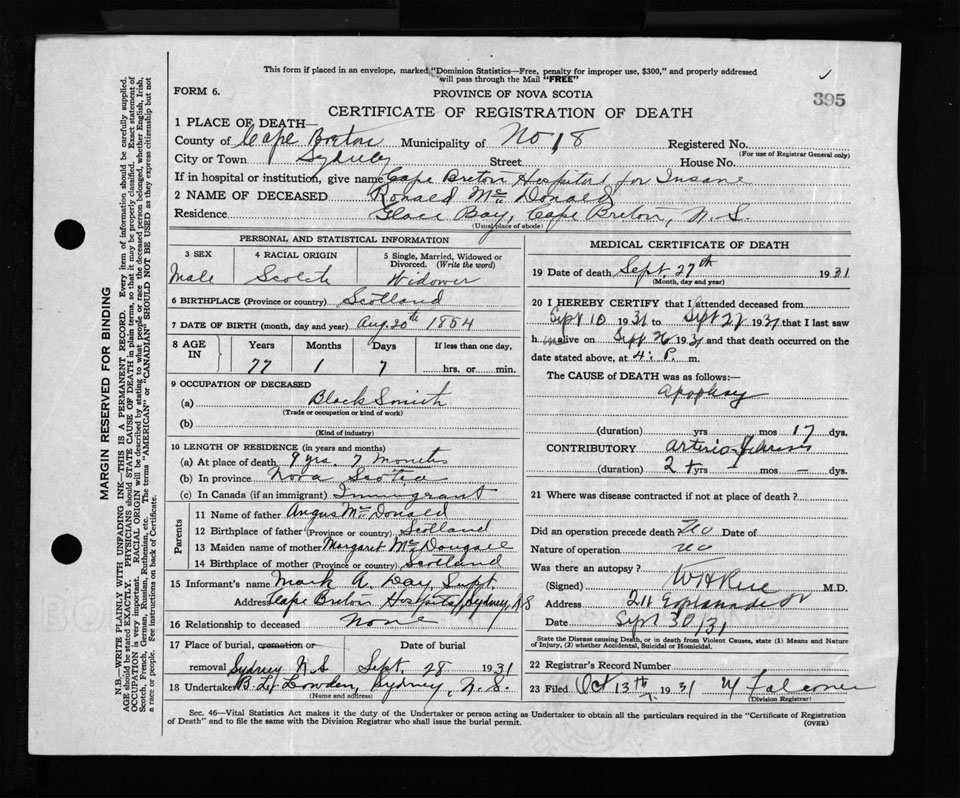 This form if placed in an envelope, marked "Dominion Statistics—Free, penalty for improper use, $300," and properly addressed
will pass through the Mail "FREE"
FORM 6.
PROVINCE OF NOVA SCOTIA
395
CERTIFICATE OF REGISTRATION OF DEATH
1 PLACE OF DEATH—
County of Cape Breton Municipality of No 18 Registered No.
(For use of Registrar General only)
City or Town Sydney Street House No.
If in hospital or institution, give name Cape Breton Hospital for Insane
2 NAME OF DECEASED Ronald Mc Donald
Residence Glace Bay, Cape Breton, N.S.
(Usual place of abode)
PERSONAL AND STATISTICAL INFORMATION
3 SEX
Male
4 RACIAL ORIGIN
Scotch
5 Single, Married, Widowed or
Divorced. (Write the word)
Widower
6 BIRTHPLACE (Province or country) Scotland
7 DATE OF BIRTH (month, day and year) Aug. 20th 1854
8 AGE IN
Years Months Days If less than one day,
77 1 7 hrs. or min.
9 OCCUPATION OF DECEASED
(a) Black Smith
(Trade or occupation or kind of work)
(b)
(Kind of industry)
10 LENGTH OF RESIDENCE (in years and months)
(a) At place of death 9 yrs. 7 months
(b) In province Nova Scotia
(c) In Canada (if an immigrant) Immigrant
Parents
11 Name of father Angus Mc Donald
12 Birthplace of father (Province or country) Scotland
13 Maiden name of mother Margaret Mc Dougall
14 Birthplace of mother (Province or country) Scotland
15 Informant's name Mark A. Day Supt
Address Cape Breton Hospital, Sydney, N.S
16 Relationship to deceased None
17 Place of burial, cremation or removal Sydney N.S
Date of burial
Sept. 28 1931
18 Undertaker B. L. Lowden, Sydney, N.S.
(Name and address)
MEDICAL CERTIFICATE OF DEATH
19 Date of death Sept. 27th 1931
(Month, day and year)
20 I HEREBY CERTIFY that I attended deceased from
Sept 10 1931 to Sept 27 1931 that I last saw
h im alive on Sept 26 1931 and that death occurred on the
date stated above, at 4: P. m.
The CAUSE of DEATH was as follows:—
apoplexy
(duration) yrs mos 17 dys.
CONTRIBUTORY Arterio
(duration) 2 + yrs — mos — dys.
21 Where was disease contracted if not at place of death?
Did an operation precede death No Date of
Nature of operation no
Was there an autopsy?
(Signed) M.D.
Address 211 Esplanade
Date Sept 30/31
State the Disease causing Death, or in death from Violent Causes, state (1) Means and Nature
of Injury, (2) whether Accidental, Suicidal or Homicidal.
22 Registrar's Record Number
23 Filed Oct 13th 1931 Falconer
(Division Registrar)
Sec. 46—Vital Statistics Act makes it the duty of the Undertaker or person acting as Undertaker to obtain all the particulars required in the "Certificate of Registration
of Death" and to file the same with the Division Registrar who shall issue the burial permit.
(OVER)
MARGIN RESERVED FOR BINDING
N.B. WRITE PLAINLY WITH UNFADING INK—THIS IS A PERMANENT RECORD. Every item of information should be carefully supplied.
AGE should be stated EXACTLY. PHYSICIANS should STATE CAUSE OF DEATH in plain terms, so that it may be properly classified. Exact statement of
OCCUPATION is very important. RACIAL ORIGIN will be described by stating to what people or race the deceased person belonged, whether English, Irish,
Scotch, French, German, Russian, Ruthenian, etc. The terms "AMERICAN" or "CANADIAN" SHOULD NOT BE USED as they express citizenship but not
a race or people. See instructions on back of Certificate.